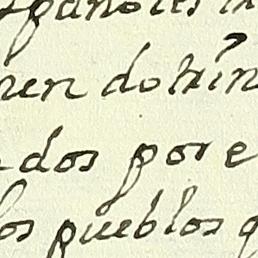 españoles
nen dotrin
dos por e
los pueblos q